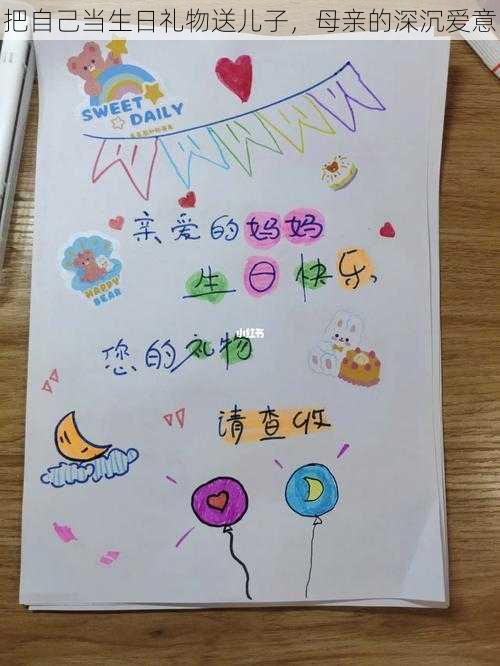 把自己当生日礼物送儿子，母亲的深沉爱意
SWEET
DAILY
亲爱的妈妈
生日快乐
HAPPY
BEAR
您的礼物
小红书
请查收